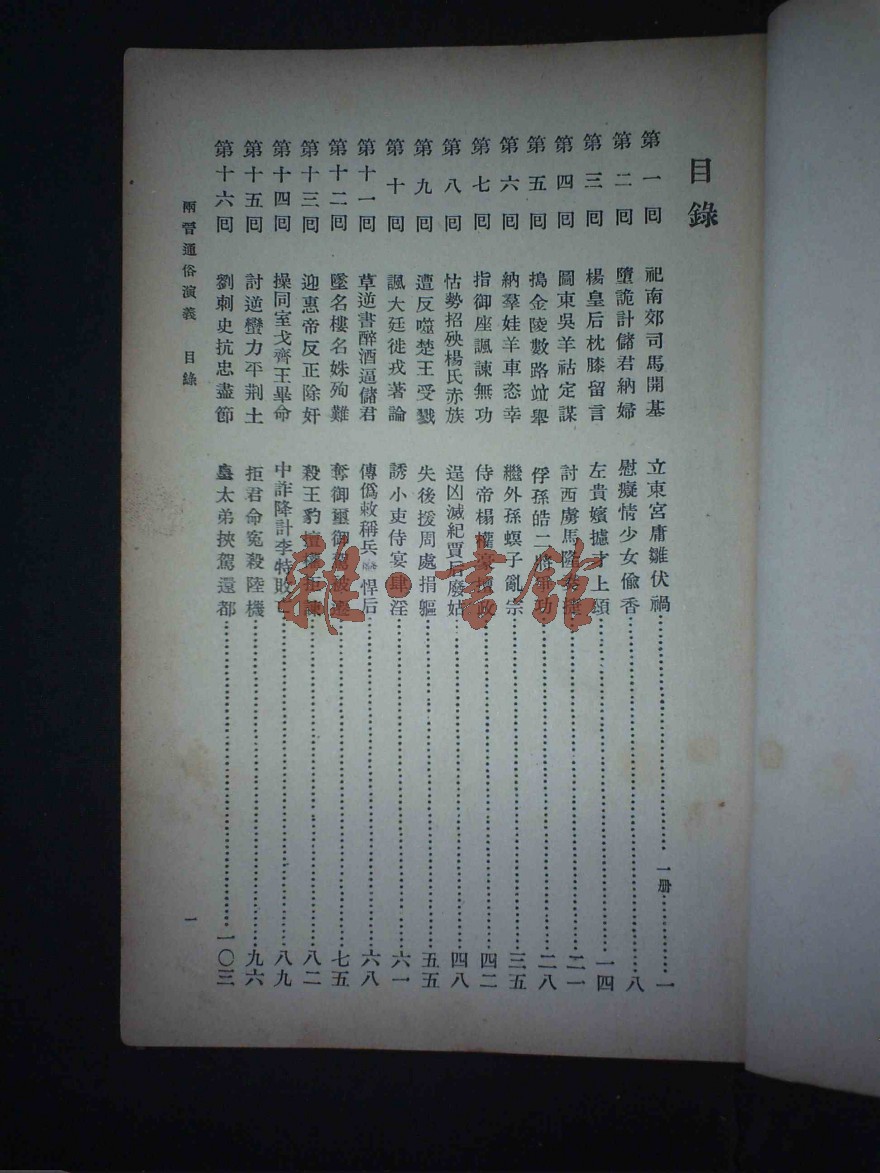 目錄
第一回 祀南郊司馬開基 立東宮庸雛伏禍 一册 一
第二回 墮詭計儲君納婦 慰癡情少女偸香 八
第三回 楊皇后枕膝留言 左貴嬪攄才上頌 一四
第四回 圖東吳羊祜定謀 討西虜馬隆奏捷 二一
第五回 搗金陵數路竝舉 俘孫皓二將爭功 二八
第六回 納羣娃羊車恣幸 繼外孫螟子亂宗 三五
第七回 指御座諷諫無功 侍帝榻權豪擅政 四二
第八回 怙勢招殃楊氏赤族 逞凶滅紀賈后廢姑 四八
第九回 遭反噬楚王受戮 失後援周處捐軀 五五
第十回 諷大廷徙戎著論 誘小吏侍宴肆淫 六一
第十一回 草逆書醉酒逼儲君 傳僞敕稱兵廢悍后 六八
第十二回 墜名樓名姝殉難 奪御璽御駕被遷 七五
第十三回 迎惠帝反正除奸 殺王豹擅權拒諫 八二
第十四回 操同室戈齊王畢命 中詐降計李特敗亡 八九
第十五回 討逆蠻力平荆土 拒君命冤殺陸機 九六
第十六回 劉刺史抗忠盡節 皇太弟挾駕還都 一〇三
兩晉通俗演義 目錄 一
雜·書館